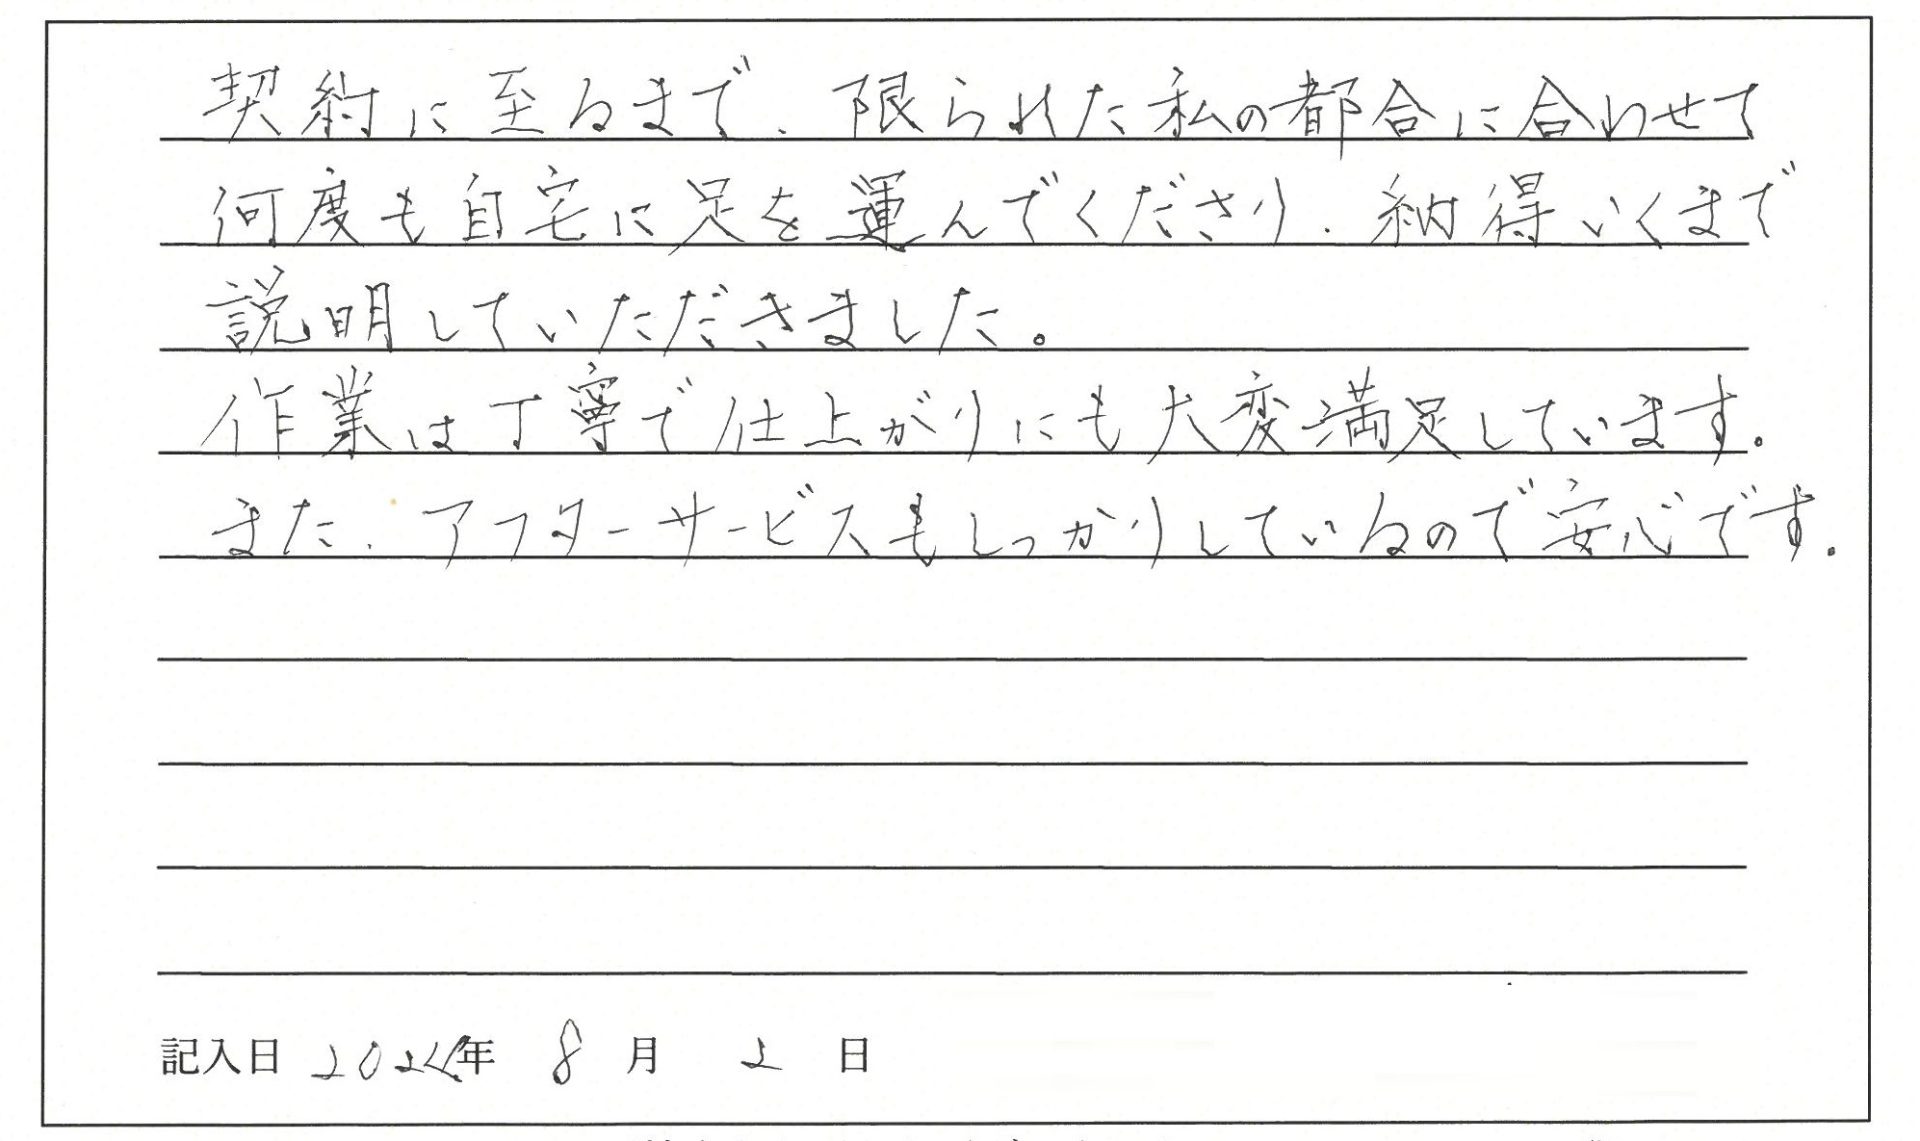 契約に至るまで、限られた私の都合に合わせて
何度も自宅に足を運んでくださり、納得いくまで
説明していただきました。
作業は丁寧で仕上がりにも大変満足しています。
また、アフターサービスもしっかりしているので安心です。
記入日 2024年 8月 2日